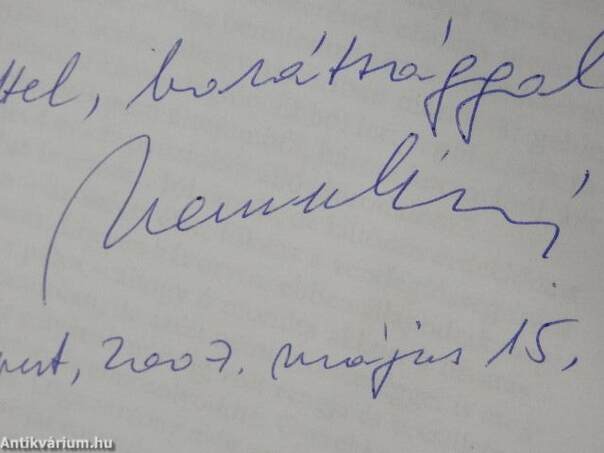 ttel, barátsággal
pest, 2007. május 15.
Antikvárium.hu